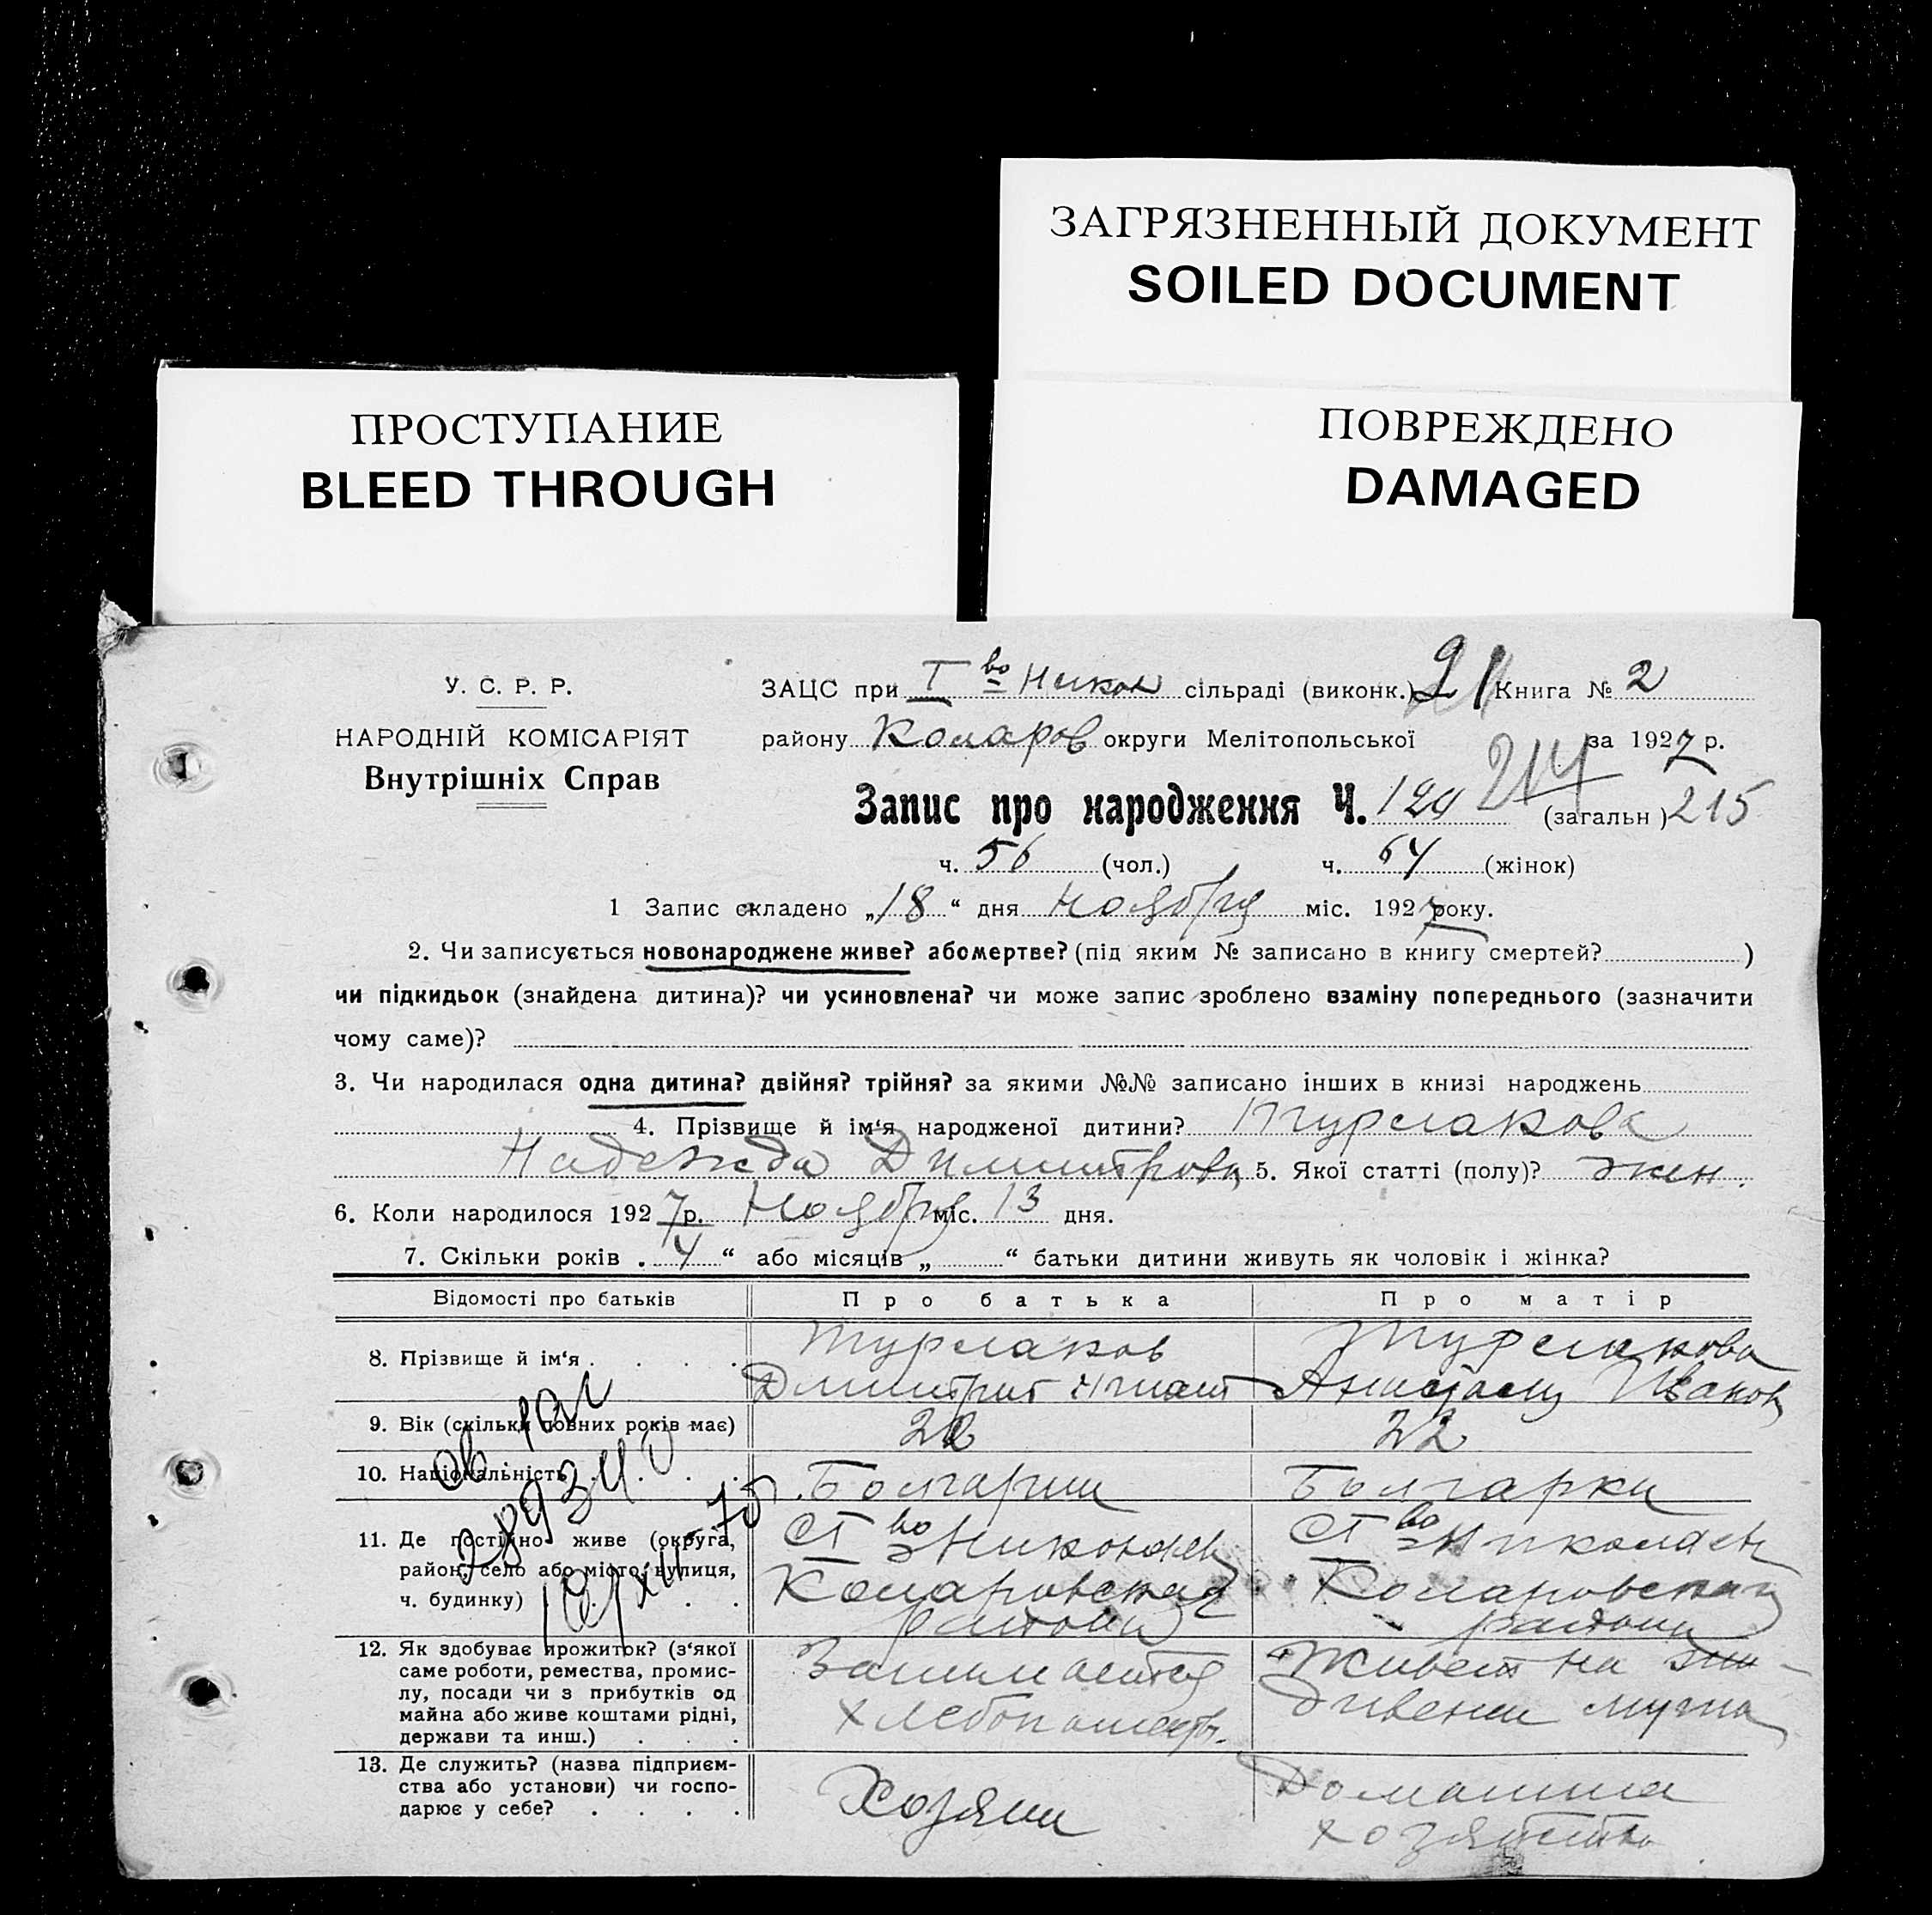 ЗАГРЯЗНЕННЫЙ ДОКУМЕНТ
SOILED DOCUMENT
ПРОСТУПАНИЕ
BLEED THROUGH
ПОВРЕЖДЕНО
DAMAGED
У. С. Р. Р.
НАРОДНІЙ КОМІСАРІЯТ
Внутрішніх Справ
ЗАЦС при I во Никол сільраді (виконк.) 21 Книга № 2
району Коларов округи Мелітопольської за 1927 р.
Запис про народження Ч. 120 214 (загальн) 215
ч. 56 (чол.) ч. 64 (жінок)
1 Запис складено „18“ дня Ноября міс. 1927 року.
2. Чи записується новонароджене живе? або мертве? (під яким № записано в книгу смертей? )
чи підкидьок (знайдена дитина)? чи усиновлена? чи може запис зроблено взаміну попереднього (зазначити
чому саме)?
3. Чи народилася одна дитина? двійня? трійня? за якими №№ записано інших в книзі народжень
4. Прізвище й ім‘я народженої дитини? Турлакова
Надежда Димитрова 5. Якої статті (полу)? жен.
6. Коли народилося 1927 р. Ноября міс. 13 дня.
7. Скільки років „4“ або місяців „ “ батьки дитини живуть як чоловік і жінка?
Відомості про батьків Про батька Про матір
8. Прізвище й ім‘я . . . . Турлаков Турлакова
Дмитрий Игнат Анастасия Иванов
9. Вік (скільки повних років має) 22 22
10. Національність . . . . Болгарин Болгарка
11. Де постійно живе (округа, район, село або місто, вулиця, ч. будинку) . . . . І во Николаев І во Николаев
Коларовская Коларовская
района района
12. Як здобуває прожиток? (з‘якої
саме роботи, ремества, промис-
лу, посади чи з прибутків од
майна або живе коштами рідні,
держави та инш.) . . .
Занимается
хлебопашеств.
Живет на ижи-
дивении мужа
13. Де служить? (назва підприєм-
ства або установи) чи госпо-
дарює у себе? . . . .
Хозяин
Домашнее
хозяйство
289340